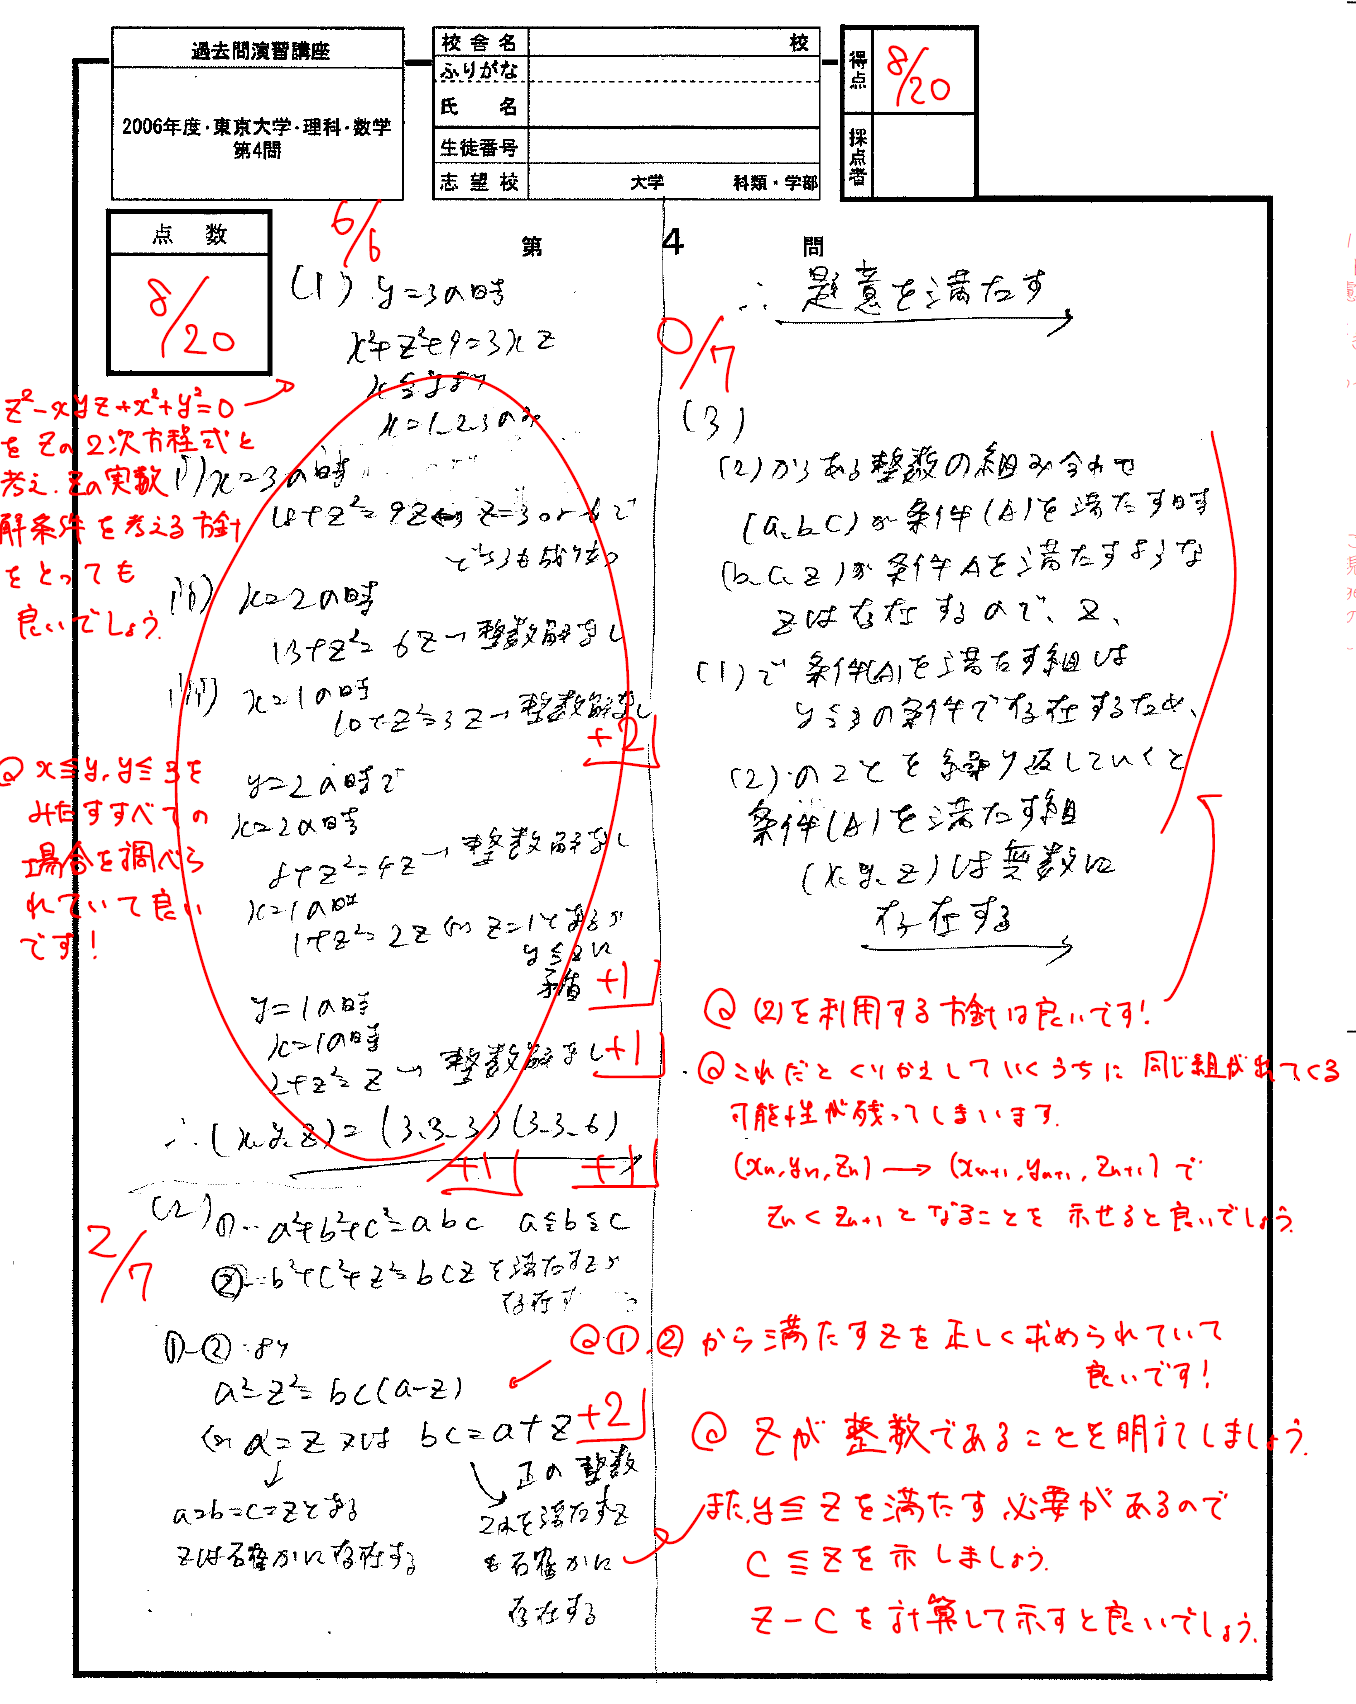 過去問演習講座
2006年度・東京大学・理科・数学
第4問
校舎名 校
ふりがな
氏 名
生徒番号
志望校 大学 科類・学部
得点 8/20
採点者
点数
8/20
第 4 問
6/6
(1) y=3の時
x²+z²+9=3xz
x≦yより
x=1,2,3のみ
i) x=3の時
18+z²=9z⇔z=3 or 6で
どちらも成り立つ
ii) x=2の時
13+z²=6z→整数解なし
iii) x=1の時
10+z²=3z→整数解なし
+2
y=2の時で
x=2の時
8+z²=4z→整数解なし
x=1の時
1+z²=2z⇔z=1となるが
y≦zに
矛盾 +1
y=1の時
x=1の時
2+z²=z→整数解なし +1
∴(x,y,z)=(3,3,3)(3,3,6)
+1 +1
z²-xyz+x²+y²=0
をzの2次方程式と
考え、zの実数
解条件を考える方針
をとっても
良いでしょう。
@ x≦y, y≦3を
みたすすべての
場合を調べら
れていて良い
です!
2/7
(2) ①…a²+b²+c²=abc a≦b≦c
②…b²+c²+z²=bczを満たすzが
存在する
①-②より
a²-z²=bc(a-z)
⇔a=z又は bc=a+z +2
a=b=c=zとなる
zは確かに存在する
正の整数
これを満たすz
も確かに
存在する
∴題意を満たす
0/7
(3)
(2)からある整数の組み合わせ
(a,b,c)が条件(A)を満たす時
(b,c,z)が条件Aを満たすような
zは存在するので、2、
(1)で条件(A)を満たす組は
y≦3の条件で存在するため、
(2)のことを繰り返していくと
条件(A)を満たす組
(x,y,z)は無数に
存在する
@ (2)を利用する方針は良いです!
@ これだとくりかえしていくうちに同じ組が出てくる
可能性が残ってしまいます。
(xn,yn,zn)→(xn+1,yn+1,zn+1)で
zn<zn+1となることを示せると良いでしょう。
@ ①,②から満たすzを正しく求められていて
良いです!
@ zが整数であることを明記しましょう。
また、y≦zを満たす必要があるので
c≦zを示しましょう。
z-cを計算して示すと良いでしょう。